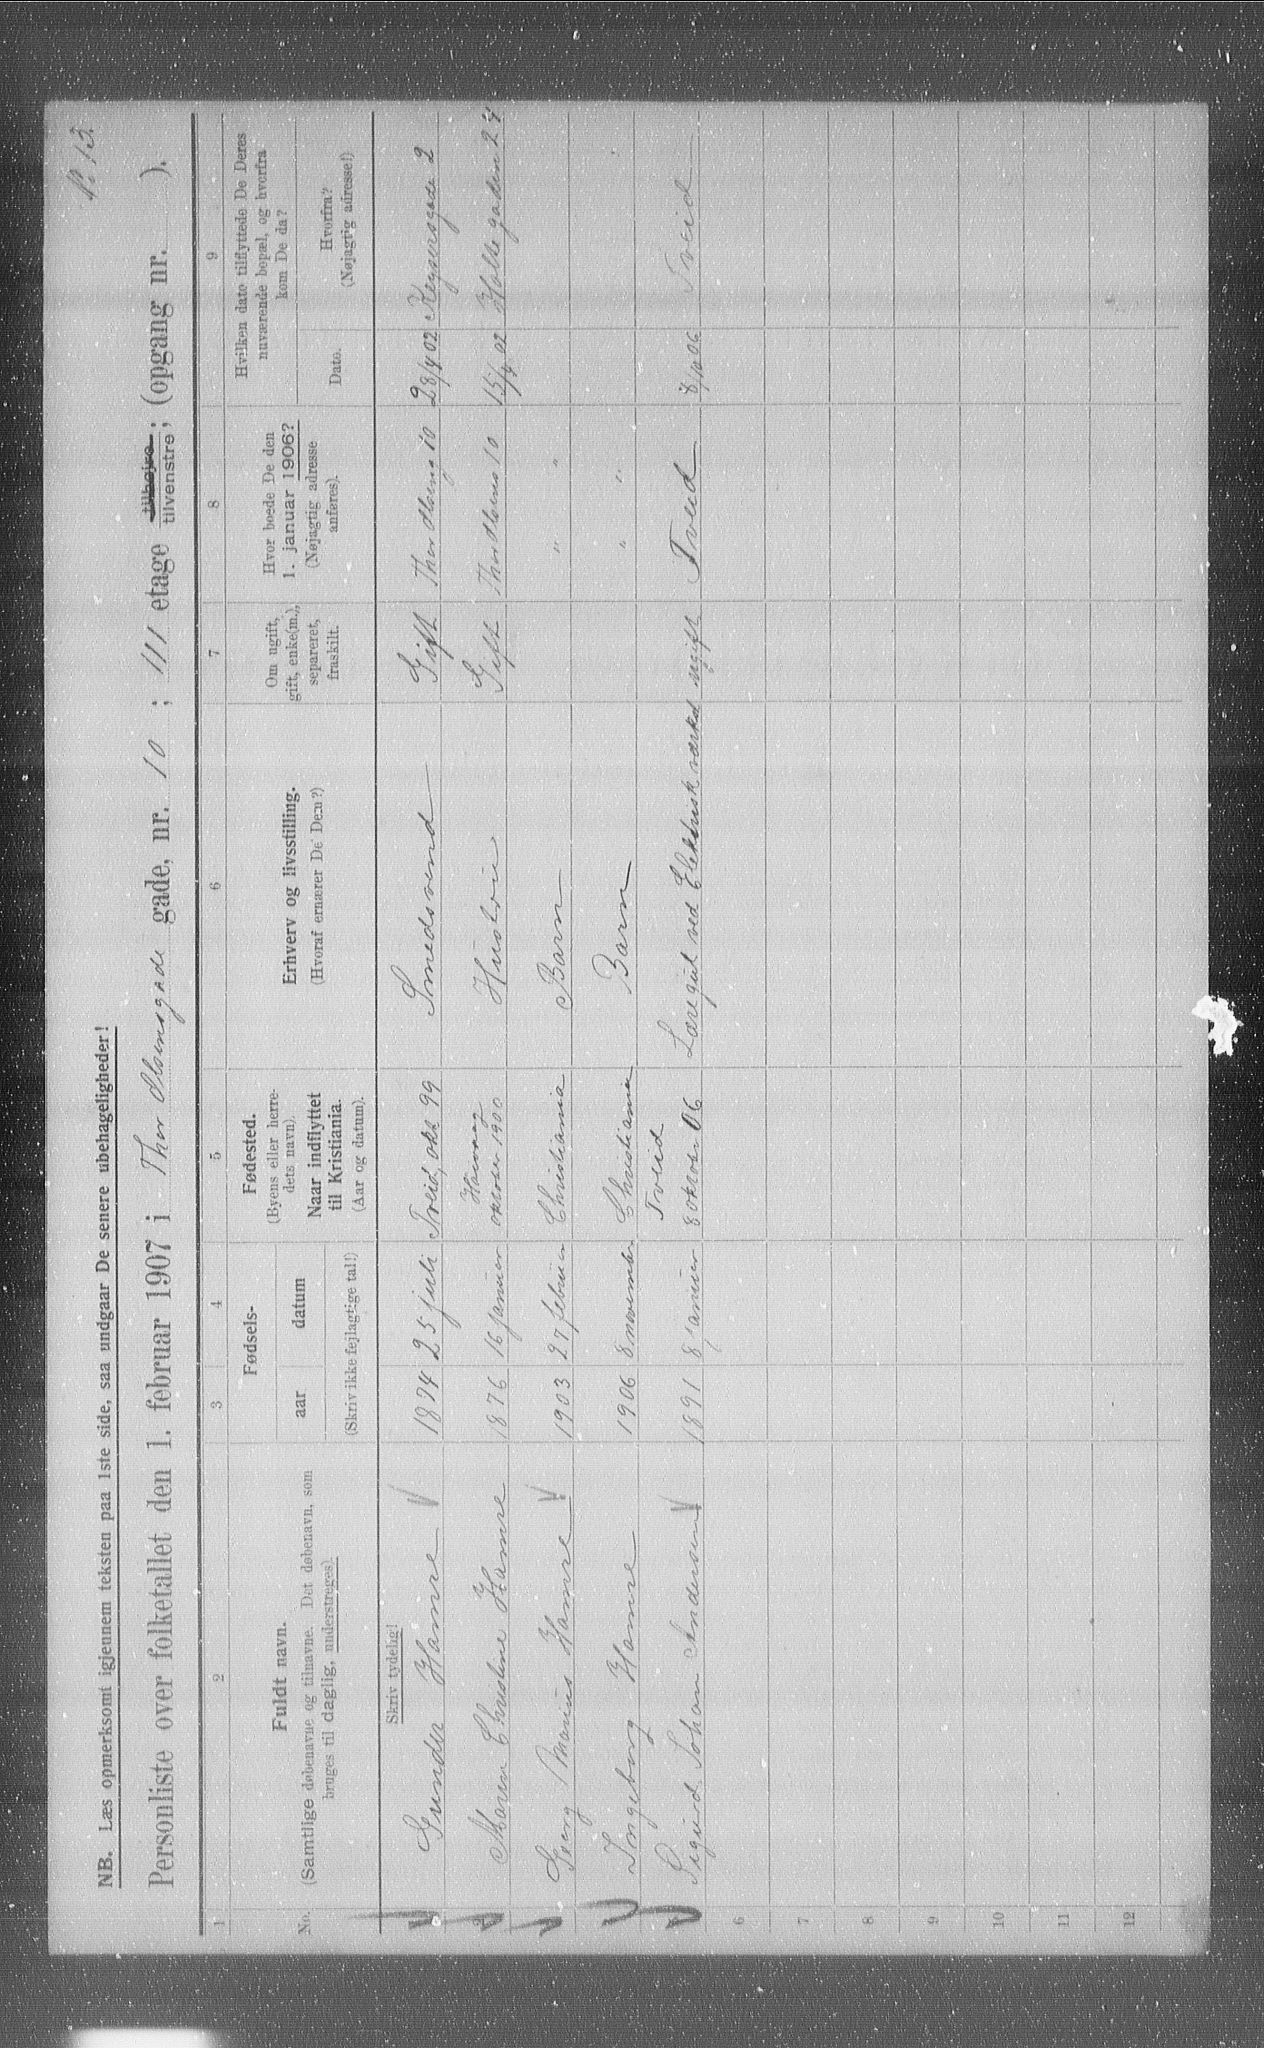 No 13.
NB. Læs opmerksomt igjennem teksten paa 1ste side, saa undgaar De senere ubehageligheder!
Personliste over folketallet den 1. februar 1907 i Thor Olsensgade gade, nr. 10 ; III etage tilhøjre tilvenstre ; (opgang nr. ).
1 2 3 4 5 6 7 8 9
No.
Fuldt navn.
(Samtlige døbenavne og tilnavne. Det døbenavn, som
bruges til daglig, understreges).
Fødsels-
aar datum
(Skriv ikke fejlagtige tal!)
Fødested.
(Byens eller herre-
dets navn).
Naar indflyttet
til Kristiania.
(Aar og datum).
Erhverv og livsstilling.
(Hvoraf ernærer De Dem?)
Om ugift,
gift, enke(m.),
separeret,
fraskilt.
Hvor boede De den
1. januar 1906?
(Nøjagtig adresse
anføres).
Hvilken dato tilflyttede De Deres
nuværende bopæl, og hvorfra
kom De da?
Dato.
Hvorfra?
(Nøjagtig adresse!)
Skriv tydelig!
Gunder Hamre 1874 25 juli Tveid, okt 99 Smedsvend Gift Thor Olsensg 10 28/4 02 Keysersgade 2
Maren Christine Hamre 1876 16 januar oktober 1900 Hustru Gift Thor Olsens 10 15/4 02 Holte gaden 24
Georg Marius Hamre 1903 27 februar Christiania Barn " "
Ingeborg Hamre 1906 8 november Christiania Barn " "
Tveid
Sigurd Johan Andersen 1891 8 januar 8 oktober 06 Læregut ved Elektrisk værked ugift Tveid 8/10 06 Tveid
6
7
8
9
10
11
12